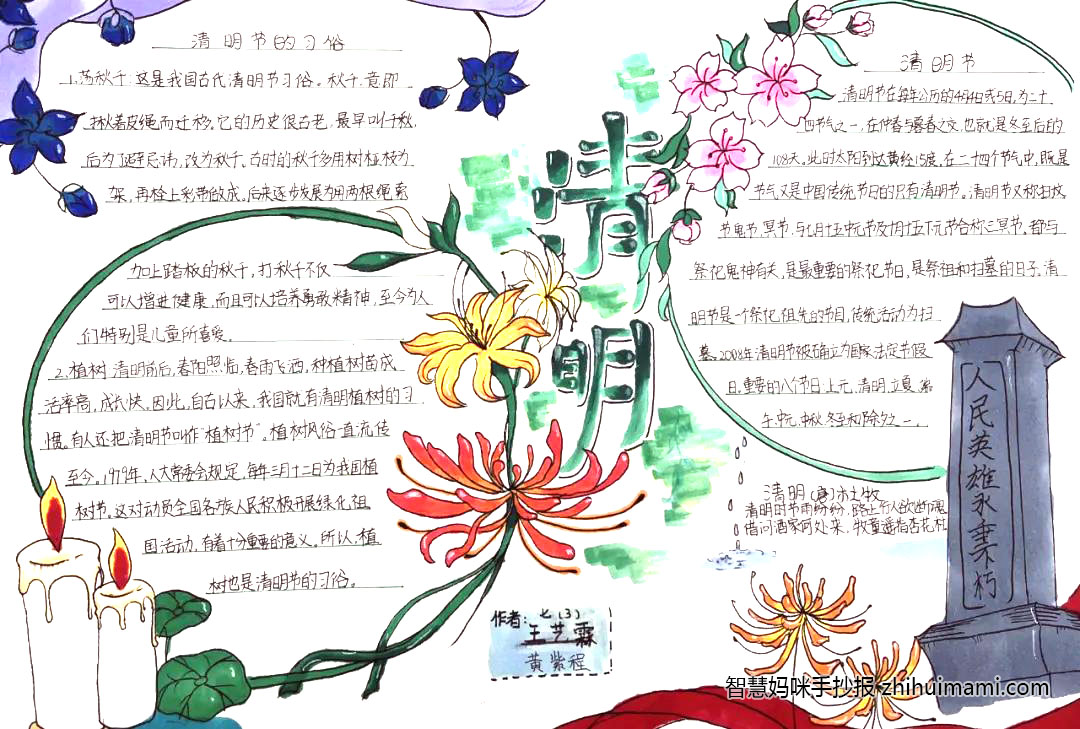 清明节的习俗
1.荡秋千:这是我国古代清明节习俗。秋千,意即
揪着皮绳而迁移。它的历史很古老,最早叫千秋,
后为了避忌讳,改为秋千。古时的秋千多用树桠枝为
架,再栓上彩带做成。后来逐步发展为用两根绳索
加上踏板的秋千,打秋千不仅
可以增进健康,而且可以培养勇敢精神,至今为人
们特别是儿童所喜爱。
2.植树:清明前后,春阳照临,春雨飞洒,种植树苗成
活率高,成长快。因此,自古以来,我国就有清明植树的习
惯。有人还把清明节叫作"植树节"。植树风俗一直流传
至今。1979年,人大常委会规定,每年三月十二日为我国植
树节。这对动员全国各族人民积极开展绿化祖
国活动,有着十分重要的意义。所以,植
树也是清明节的习俗。
清明
清明节
清明节在每年公历的4月4日或5日,为二十
四节气之一,在仲春与暮春之交,也就是冬至后的
108天。此时太阳到达黄经15度。在二十四个节气中,既是
节气又是中国传统节日的只有清明节。清明节又称扫坟
节、鬼节、冥节,与七月十五中元节及十月十五下元节合称三冥节。都与
祭祀鬼神有关,是最重要的祭祀节日,是祭祖和扫墓的日子。清
明节是一个祭祀祖先的节日,传统活动为扫
墓。2008年清明节被确立为国家法定节假
日。重要的八个节日:上元,清明,立夏,端
午,中元,中秋,冬至和除夕之一。
清明 (唐)杜牧
清明时节雨纷纷,路上行人欲断魂
借问酒家何处来,牧童遥指杏花村
人民英雄永垂不朽
作者: 七(3)
王艺霖
黄紫程
智慧妈咪手抄报 zhihuimami.com